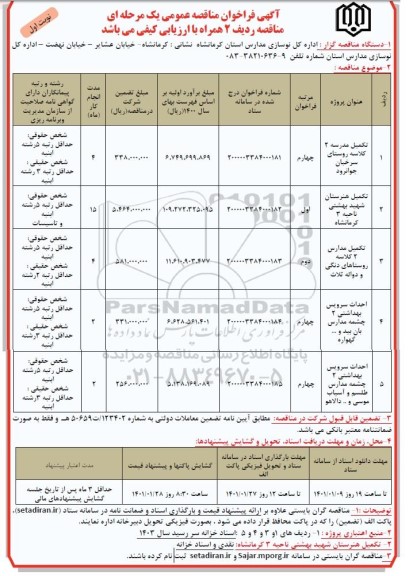 نوبت اول
آگهی فراخوان مناقصه عمومی یک مرحله ای
مناقصه ردیف ۲ همراه با ارزیابی کیفی می باشد
۱-دستگاه مناقصه گزار: اداره کل نوسازی مدارس استان کرمانشاه نشانی: کرمانشاه - خیابان عشایر - خیابان نهضت - اداره کل
نوسازی مدارس استان شماره تلفن
۲- موضوع مناقصه:
ردیف
عنوان پروژه
مرتبه فراخوان
شماره فراخوان درج شده در سامانه ستاد
مبلغ برآورد اولیه بر اساس فهرست بهای سال ۱۴۰۰(ریال)
مبلغ تضمین شرکت درمناقصه(ریال)
مدت انجام کار ماه
رشته و رتبه پیمانکاران دارای گواهی نامه صلاحیت از سازمان مدیریت وبرنامه ریزی
۱
تکمیل مدرسه ۲ کلاسه روستای سرخبان جوانرود
چهارم
۲۰۰۰۰۰۳۳۸۴۰۰۰۱۸۱
۶,۷۴۹,۶۹۹,۸۶۹
۳۳۸,۰۰۰,۰۰۰
۴
شخص حقوقی: حداقل رتبه ۵رشته ابنیه
شخص حقیقی: حداقل رتبه ۳رشته ابنیه
۲
تکمیل هنرستان شهید بهشتی ناحیه ۳ کرمانشاه
اول
۲۰۰۰۰۰۳۳۸۴۰۰۰۱۸۲
۱۰۹,۲۷۲,۳۲۵,۰۹۵
۵,۴۶۴,۰۰۰,۰۰۰
۱۵
شخص حقوقی: حداقل رتبه ۵رشته ابنیه و تاسیسات
۳
تکمیل مدارس ۲ کلاسه روستاهای دنگی و دواله ثلاث
دوم
۲۰۰۰۰۰۳۳۸۴۰۰۰۱۸۳
۱۱,۶۱۰,۹۰۳,۴۷۷
۵۸۱,۰۰۰,۰۰۰
۴
شخص حقوقی: حداقل رتبه ۵رشته ابنیه
۴
احداث سرویس بهداشتی ۲ چشمه مدارس بان بید و ... گهواره
چهارم
۲۰۰۰۰۰۳۳۸۴۰۰۰۱۸۴
۶,۶۲۸,۵۶۱,۴۰۱
۳۳۱,۰۰۰,۰۰۰
۲
شخص حقوقی: حداقل رتبه ۵رشته ابنیه
شخص حقیقی: حداقل رتبه ۳رشته ابنیه
۵
احداث سرویس بهداشتی ۲ چشمه مدارس طلسم و آسیاب موسی و.. دالاهو
چهارم
۲۰۰۰۰۰۳۳۸۴۰۰۰۱۸۵
۵,۱۳۸,۱۶۹,۰۸۹
۲۵۶,۰۰۰,۰۰۰
۲
شخص حقوقی: حداقل رتبه ۵رشته ابنیه
شخص حقیقی: حداقل رتبه ۳رشته ابنیه
ParsNamadData
۰۲۱-۸۸۳۴۹۶۷۰-۵
۳- تضمین قابل قبول شرکت در مناقصه: مطابق آیین نامه تضمین معاملات دولتی به شماره ۱۲۳۴۰۲/ت۵۰۶۵۹ هـ و فقط به صورت
ضمانتنامه معتبر بانکی می باشد.
۴- محل، زمان و مهلت دریافت اسناد، تحویل و گشایش پیشنهادها:
مهلت دانلود اسناد از سامانه ستاد
مهلت بارگذاری اسناد در سامانه ستاد و تحویل فیزیکی پاکت الف
گشایش پاکتها و پیشنهاد قیمت
مدت اعتبار پیشنهاد
تا ساعت ۱۹ روز ۱۴۰۱/۰۱/۰۹
تا ساعت ۱۲ روز ۱۴۰۱/۰۱/۲۷
ساعت ۸:۳۰ روز ۱۴۰۱/۰۱/۲۸
حداقل ۳ ماه پس از تاریخ جلسه گشایش پیشنهادهای مالی
توضیحات: ۱- مناقصه گران بایستی علاوه بر ارائه پیشنهاد قیمت و بارگذاری اسناد و ضمانت نامه در سامانه ستاد (setadiran.ir)،
پاکت الف (تضمین) را که در پاکت محافظ قرار داده می شود، بصورت فیزیکی تحویل دبیرخانه اداره نمایند.
۲- منبع اعتباری پروژه: ردیف های ۱و ۳ و ۴ و ۵: اسناد خزانه سر رسید سال ۱۴۰۳
۲- تکمیل هنرستان شهید بهشتی ناحیه ۳ کرمانشاه: نقدی و اسناد خزانه
۳- مناقصه گران بایستی در سامانه Sajar.mporg.ir و setadiran.ir ثبت نام کرده باشند.